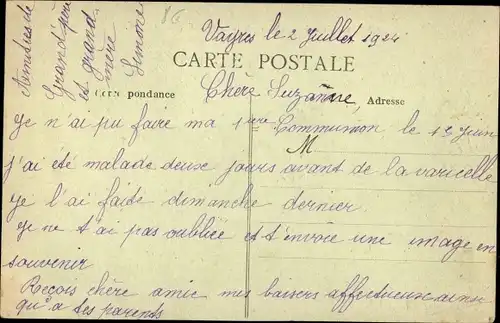 Vayres le 2 Juillet 1924
CARTE POSTALE
Correspondance
Adresse
M
Chère Suzanne,
Je n'ai pu faire ma 1ère Communion le 1er Juin
j'ai été malade deux jours avant de la varicelle
je l'ai faite dimanche dernier
je ne t'ai pas oubliée et t'envoie une image en
souvenir
Reçois chère amie mes baisers affectueux ainsi
qu'a tes parents
Amitiés de
Grand père
et grand
mère
Simone